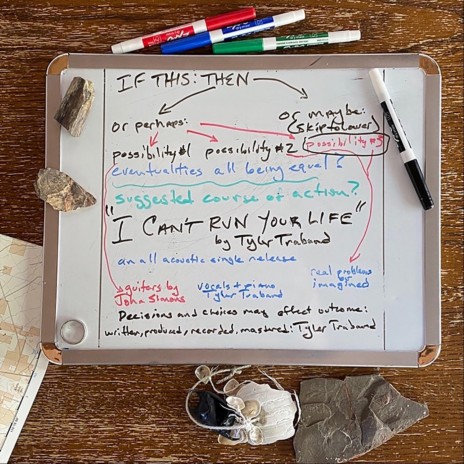 IF THIS: THEN
or maybe:
(skip to lower)
or perhaps:
possibility #1 possibility #2 possibility #3
eventualities all being equal?
suggested course of action?
"I CAN'T RUN YOUR LIFE"
by Tyler Traband
an all acoustic single release
real problems
by
imagined
guitars by
John Simons
vocals + piano
Tyler Traband
Decisions and choices may effect outcome:
written, produced, recorded, mastered: Tyler Traband